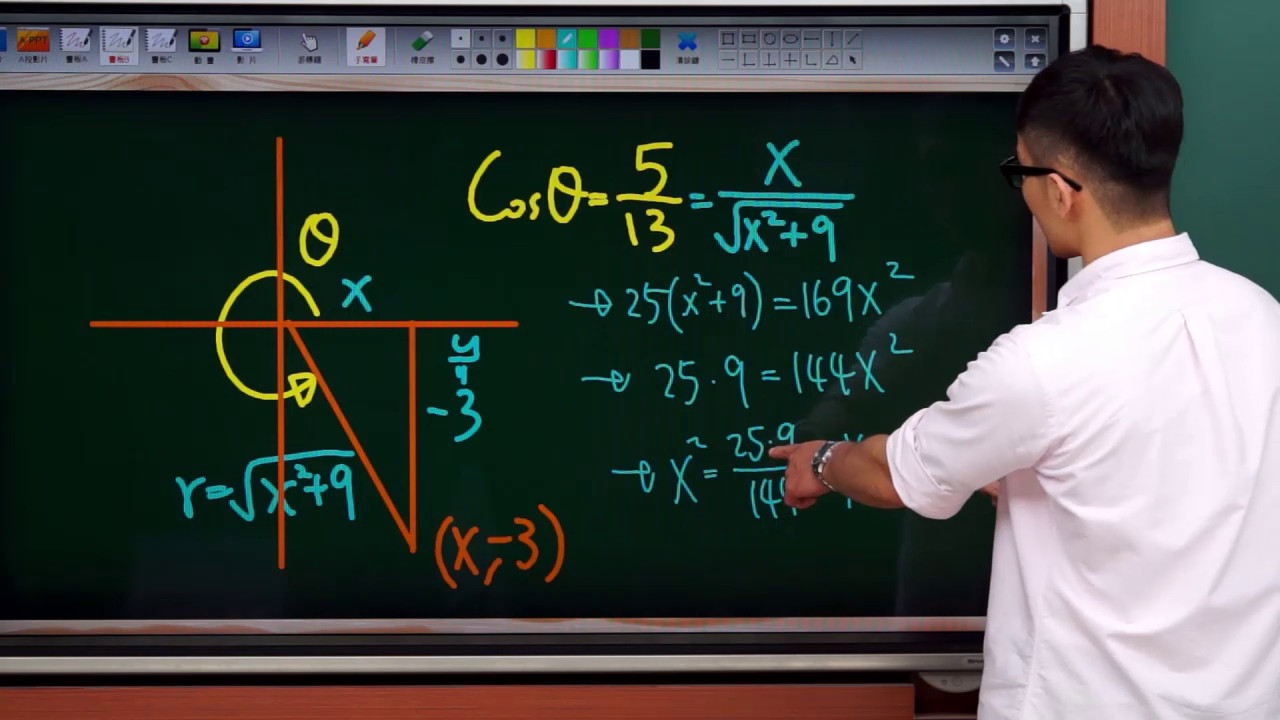 A投影片 畫板A 畫板B 畫板C 動畫 影片 手寫筆 橡皮擦 清除鍵
Cosθ = 5/13 = x/√(x²+9)
θ
x
→ 25(x²+9) = 169x²
y
-3
→ 25·9 = 144x²
→ x² = 25·9/144
r = √(x²+9)
(x, -3)